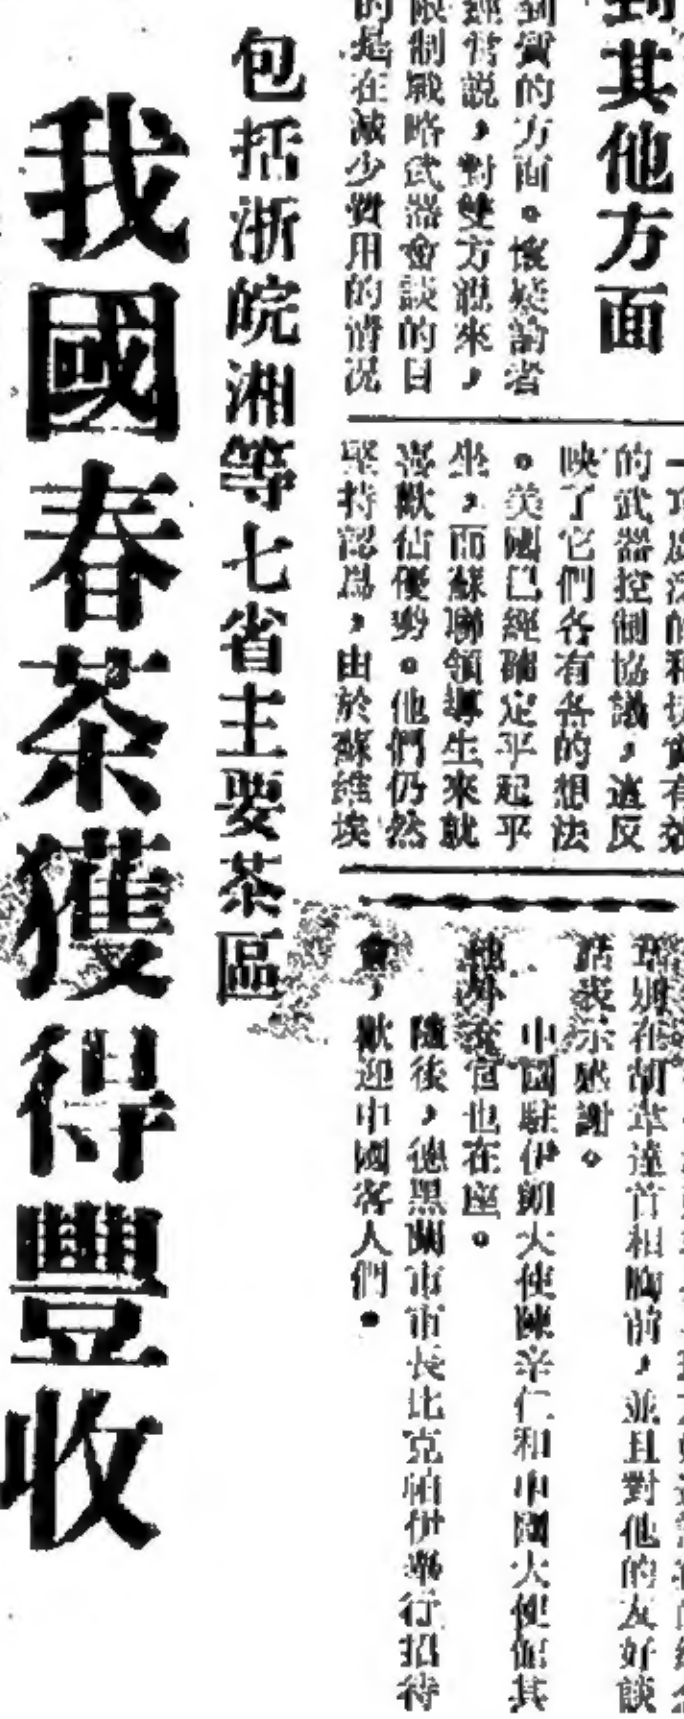 到其他方面
到質的方面。懷疑論者
經常說，對雙方說來，
限制戰略武器會談的目
的是在減少費用的情況
的武器控制協議，這反
映了它們各有各的想法
。美國已經確定平起平
坐，而蘇聯領導生來就
喜歡佔優勢。他們仍然
堅持認爲，由於蘇維埃
則在胡韋達首相胸前，並且對他的友好談
話表示感謝。
中國駐伊朗大使陳辛仁和中國大使館其
他外交官也在座。
隨後，德黑蘭市市長比克帕伊舉行招待
會，歡迎中國客人們。
包括浙皖湘等七省主要茶區
我國春茶獲得豐收